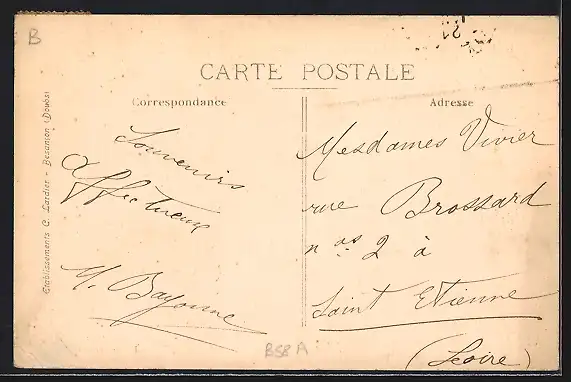 B
21
CARTE POSTALE
Correspondance
Adresse
Etablissements C. Lardier - Besançon (Doubs)
Souvenirs
affectueux
M. Bayonne
Mesdames Vivier
rue Brossard
nos 2 à
Saint Etienne
(Loire)
B58A